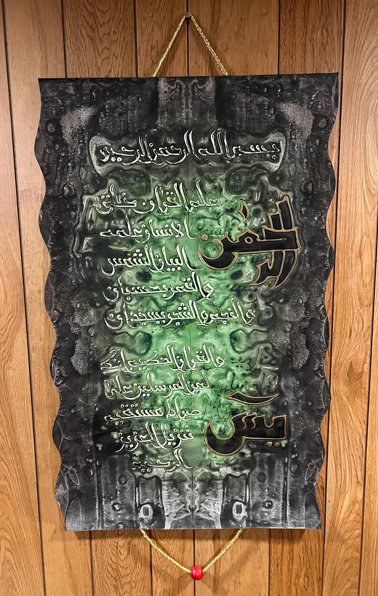 بسم الله الرحمن الرحيم
الرحمن
علم القرآن خلق
الإنسان علمه
البيان الشمس
والقمر بحسبان
والنجم والشجر يسجدان
يس
والقرآن الحكيم إنك
لمن المرسلين على
صراط مستقيم
تنزيل العزيز
الرحيم